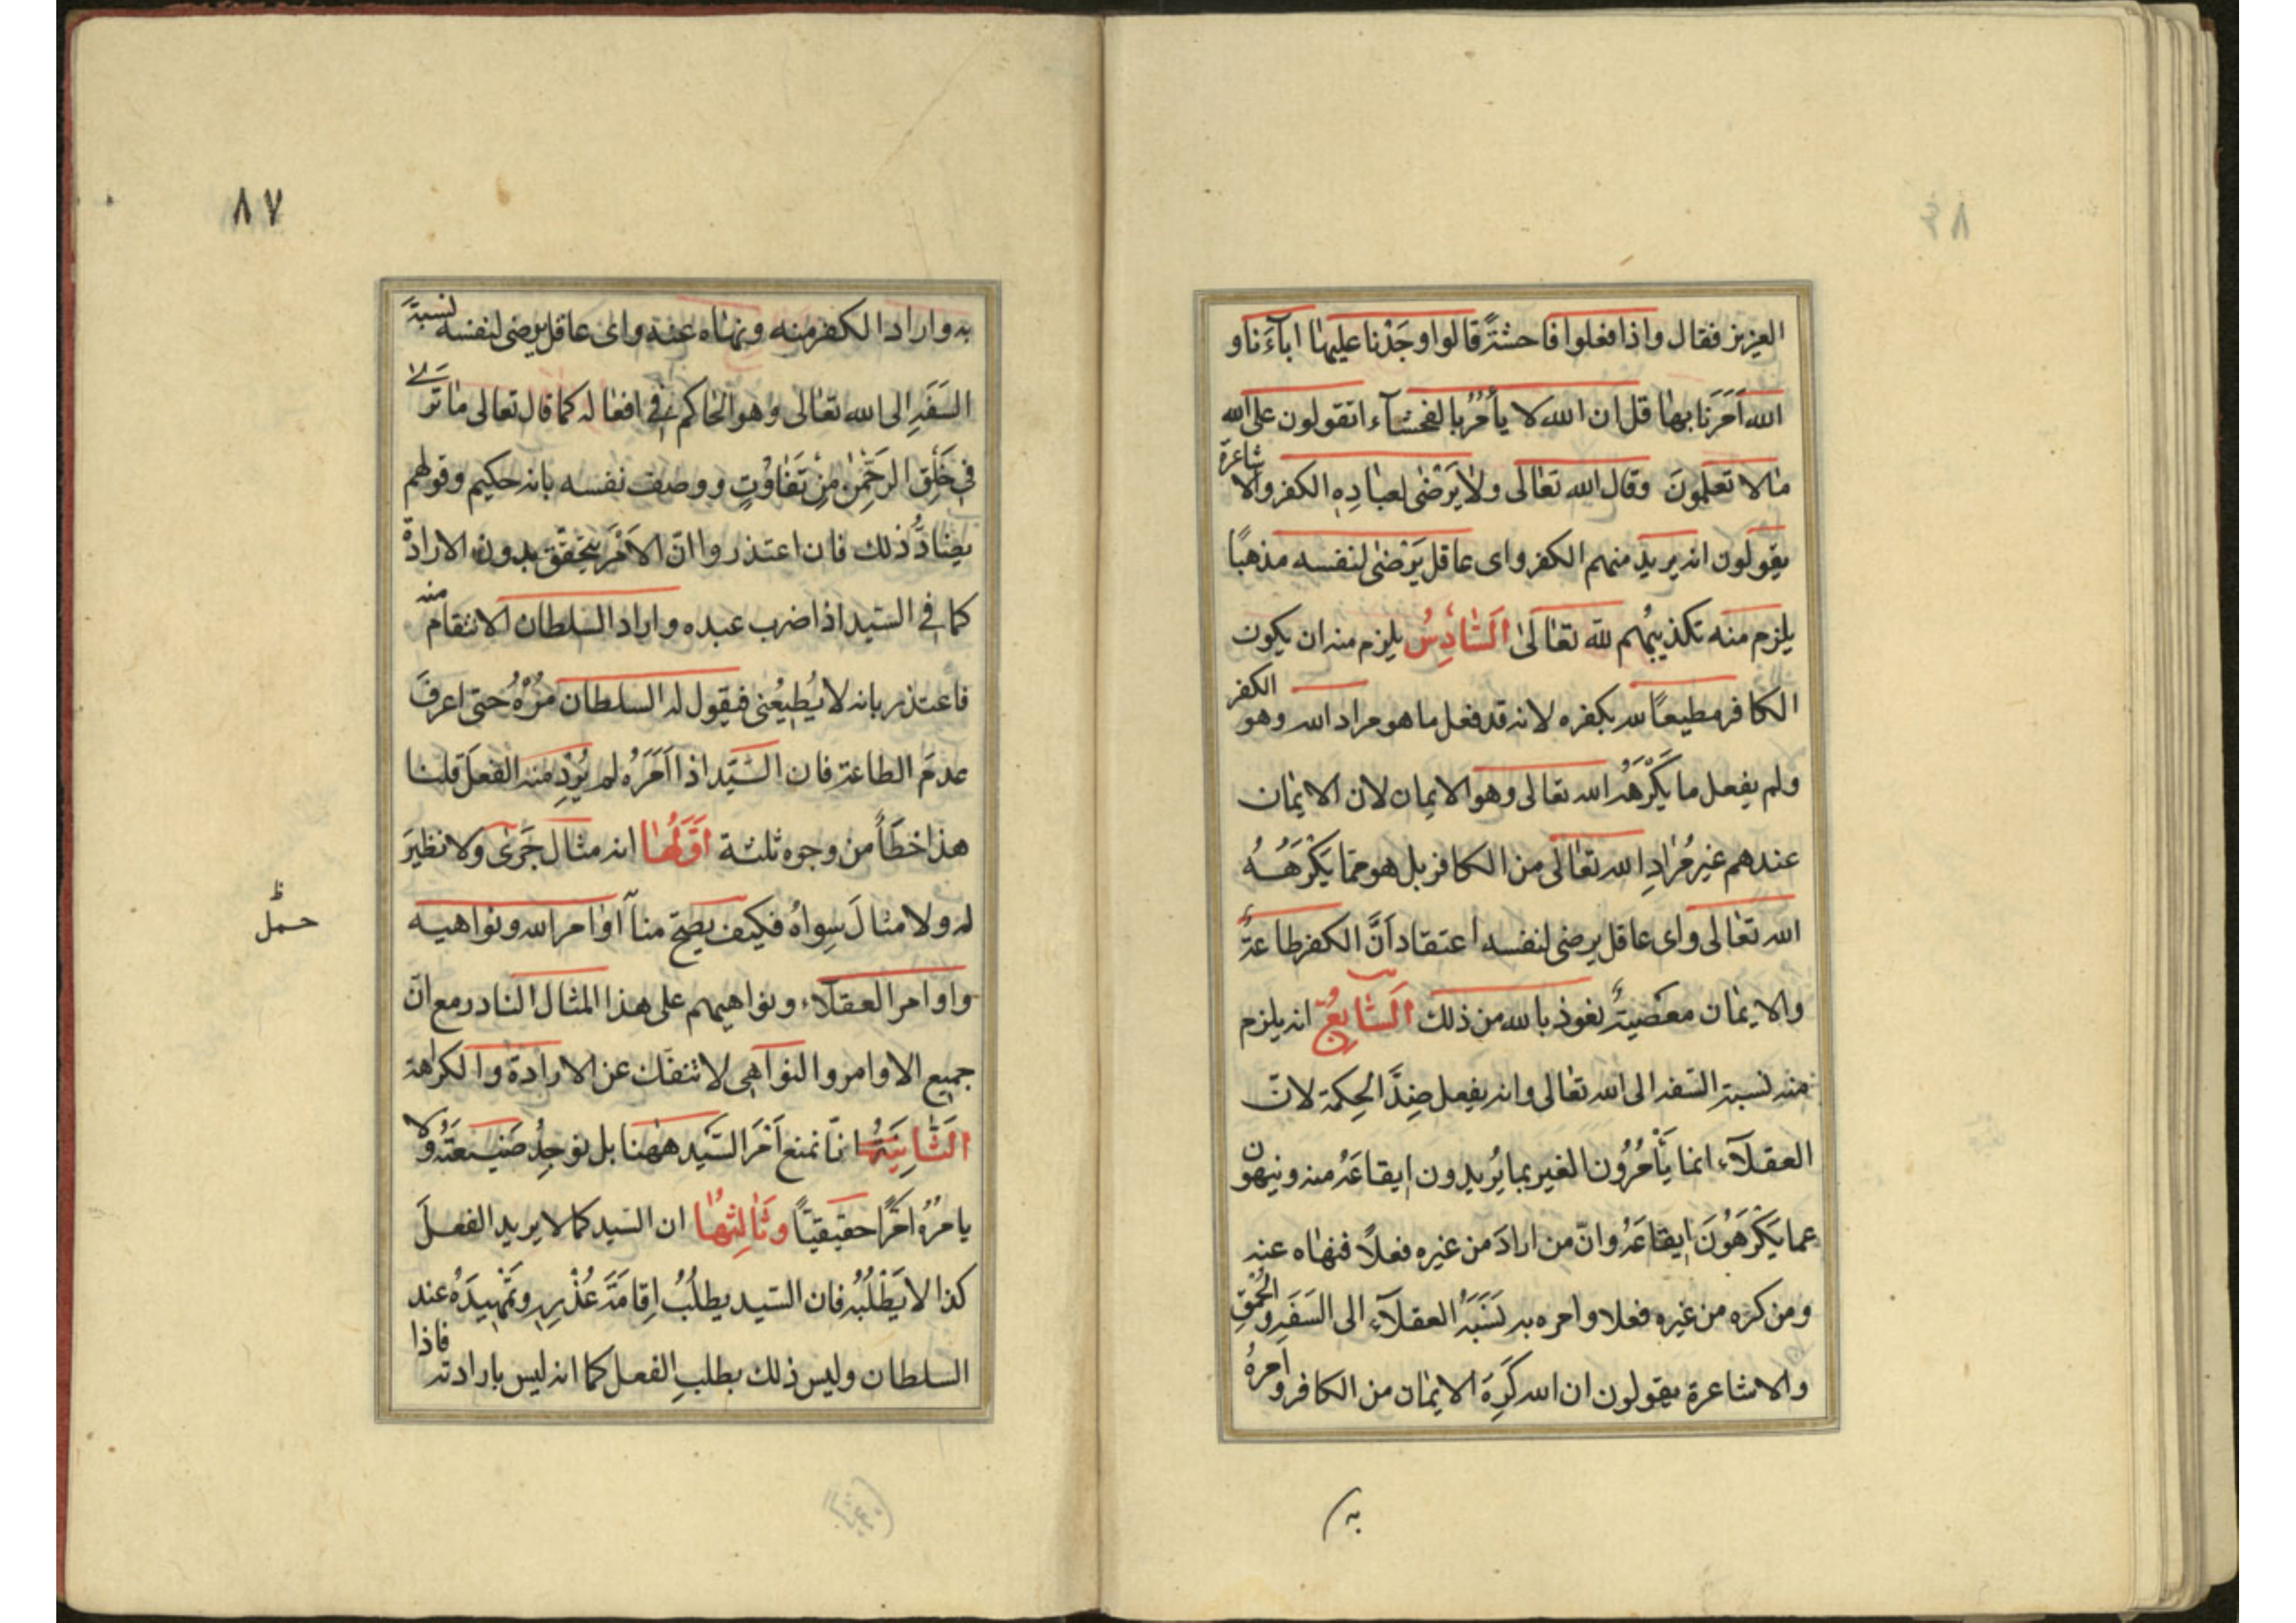 العزيز فقال واذا فعلوا فاحشة قالوا وجَدْنا عليها اباۤءَنا و
الله اَمَرَنا بها قل ان الله لا يأمُرُ بالفحشاۤء اتقولون على الله
مالا تعلمونَ وقال الله تعالى ولا يَرْضٰى لعبادِهِ الكفر والاشاعرة
يقولون انه يريد منهم الكفر واى عاقل يَرْضٰى لنفسه مذهبًا
يلزم منه تكذيبُهم لله تعالىٰ اَلسّادِسُ يلزم منه ان يكون
الكافر مطيعًا لله بكفره لانه قد فعل ما هو مراد الله وهو الكفر
ولم يفعل ما يَكْرَهُهُ الله تعالى وهو الايمان لان الايمان
عندهم غير مُرادِ الله تعالى من الكافر بل هو مما يَكْرَهُهُ
الله تعالى واى عاقل يرضى لنفسه اعتقاد اَنَّ الكفر طاعةٌ
والايمان معصيةٌ نعوذ بالله من ذلك اَلسّابِعُ انه يلزم
منه نسبة السفه الى الله تعالى وانه يفعل ضِدَّ الحِكمة لانّ
العقلاۤء انما يَأْمُرُون الغير بما يُريدون ايقاعَهُ منه وينهون
عما يَكْرَهُونَ ايقاعَهُ وانّ من ارادَ من غيره فعلاً فنهاه عنه
ومن كَرِه من غيره فعلا وامره به نَسَبَهُ العقلاۤء الى السَفَهِ والحُمْقِ
والاشاعرة يقولون ان الله كَرِهَ الايمان من الكافر وامرهُ
به
٨٧
به واراد الكفر منه ونهاه عنه واى عاقل يرضى لنفسه نسبةَ
السَفَهِ الى الله تعالى وهو الحاكم فى افعاله كما قال تعالى ما تَرى
فى خَلْقِ الرَحْمٰنِ مِنْ تَفاوُتٍ ووصف نفسه بانه حكيم وقولهم
يضادُّ ذلك فان اعتذروا انّ الاَمْرَ يتحقّق بدون الارادة
كما فى السيد اذا ضرب عبده واراد السلطان الانتقام منه
فاعتذر بانه لا يُطيعُنى فيقول له السلطان مُرْهُ حتى اعرفَ
عدمَ الطاعة فان السيّد اذا اَمَرَهُ لم يُرِدْ منه الفعلَ قلنا
هذا خطَأً من وجوه ثلثة اَوّلُها انه مثال جَرَى ولا نظيرَ
له ولا مثالَ سِواهُ فكيف يصحّ مناۤ اوامر الله ونواهيه
حمل ظ
واوامر العقلاۤء ونواهيهم على هذا المثال النادر مع انّ
جميع الاوامر والنواهى لا تنفك عن الارادة والكراهة
الثّانِيَةُ انّا نمنع اَمْرَ السيّد ههنا بل نوجِدُ صَيـغَتَهُ ولا
يامرُهُ امرًا حقيقيّاً وثالِثها ان السيد كما لا يريد الفعلَ
كذا لا يَطْلُبُه فان السيد يطلُبُ اِقامَةَ عُذْرِهِ وتَمْهيدَهُ عند
السلطان وليس ذلك بطلبِ الفعل كما انه ليس بارادته فاذا